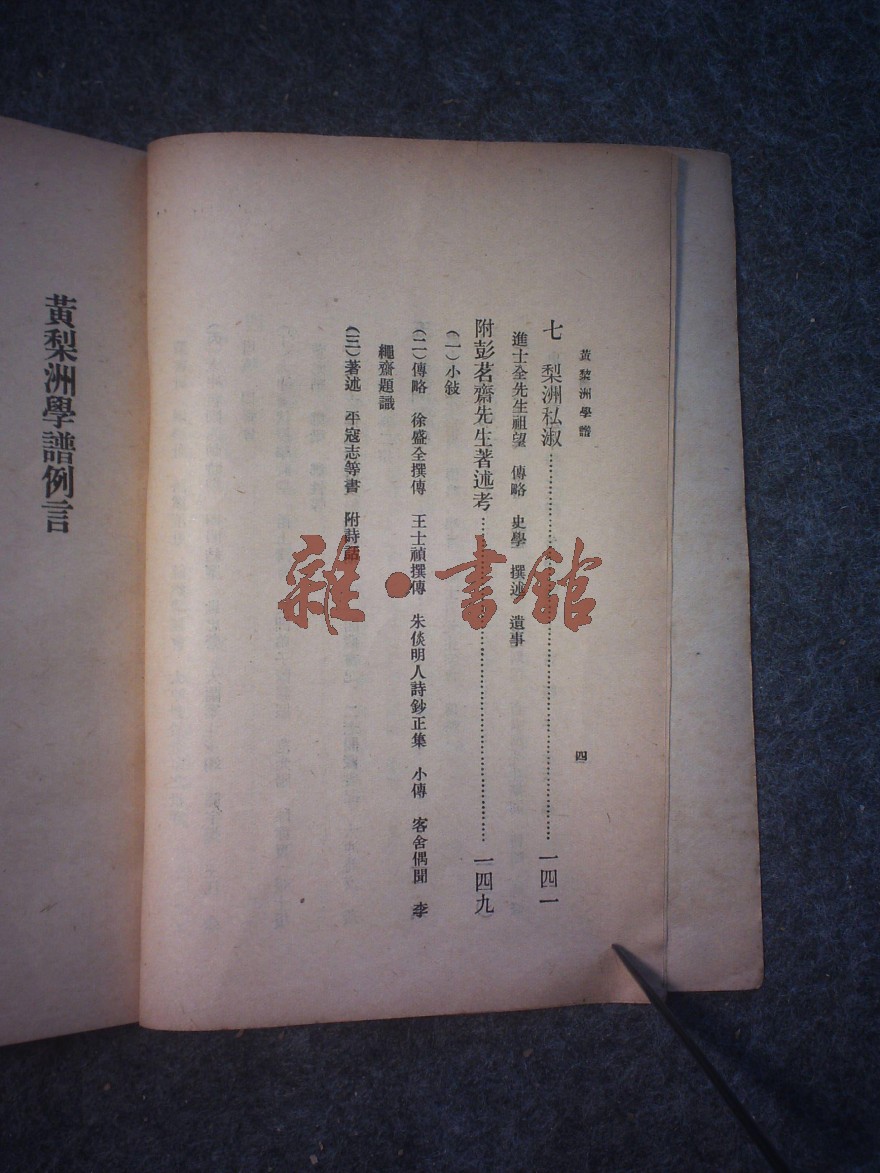 黃梨洲學譜
四
七 梨洲私淑……一四一
進士全先生祖望 傳略 史學 撰述 遺事
附彭茗齋先生著述考……一四九
（一）小敍
（二）傳略 徐盛全撰傳 王士禎撰傳 朱倓明人詩鈔正集 小傳 客舍偶聞 李
繩齋題識
（三）著述 平寇志等書 附詩話
黃梨洲學譜例言
雜·書館